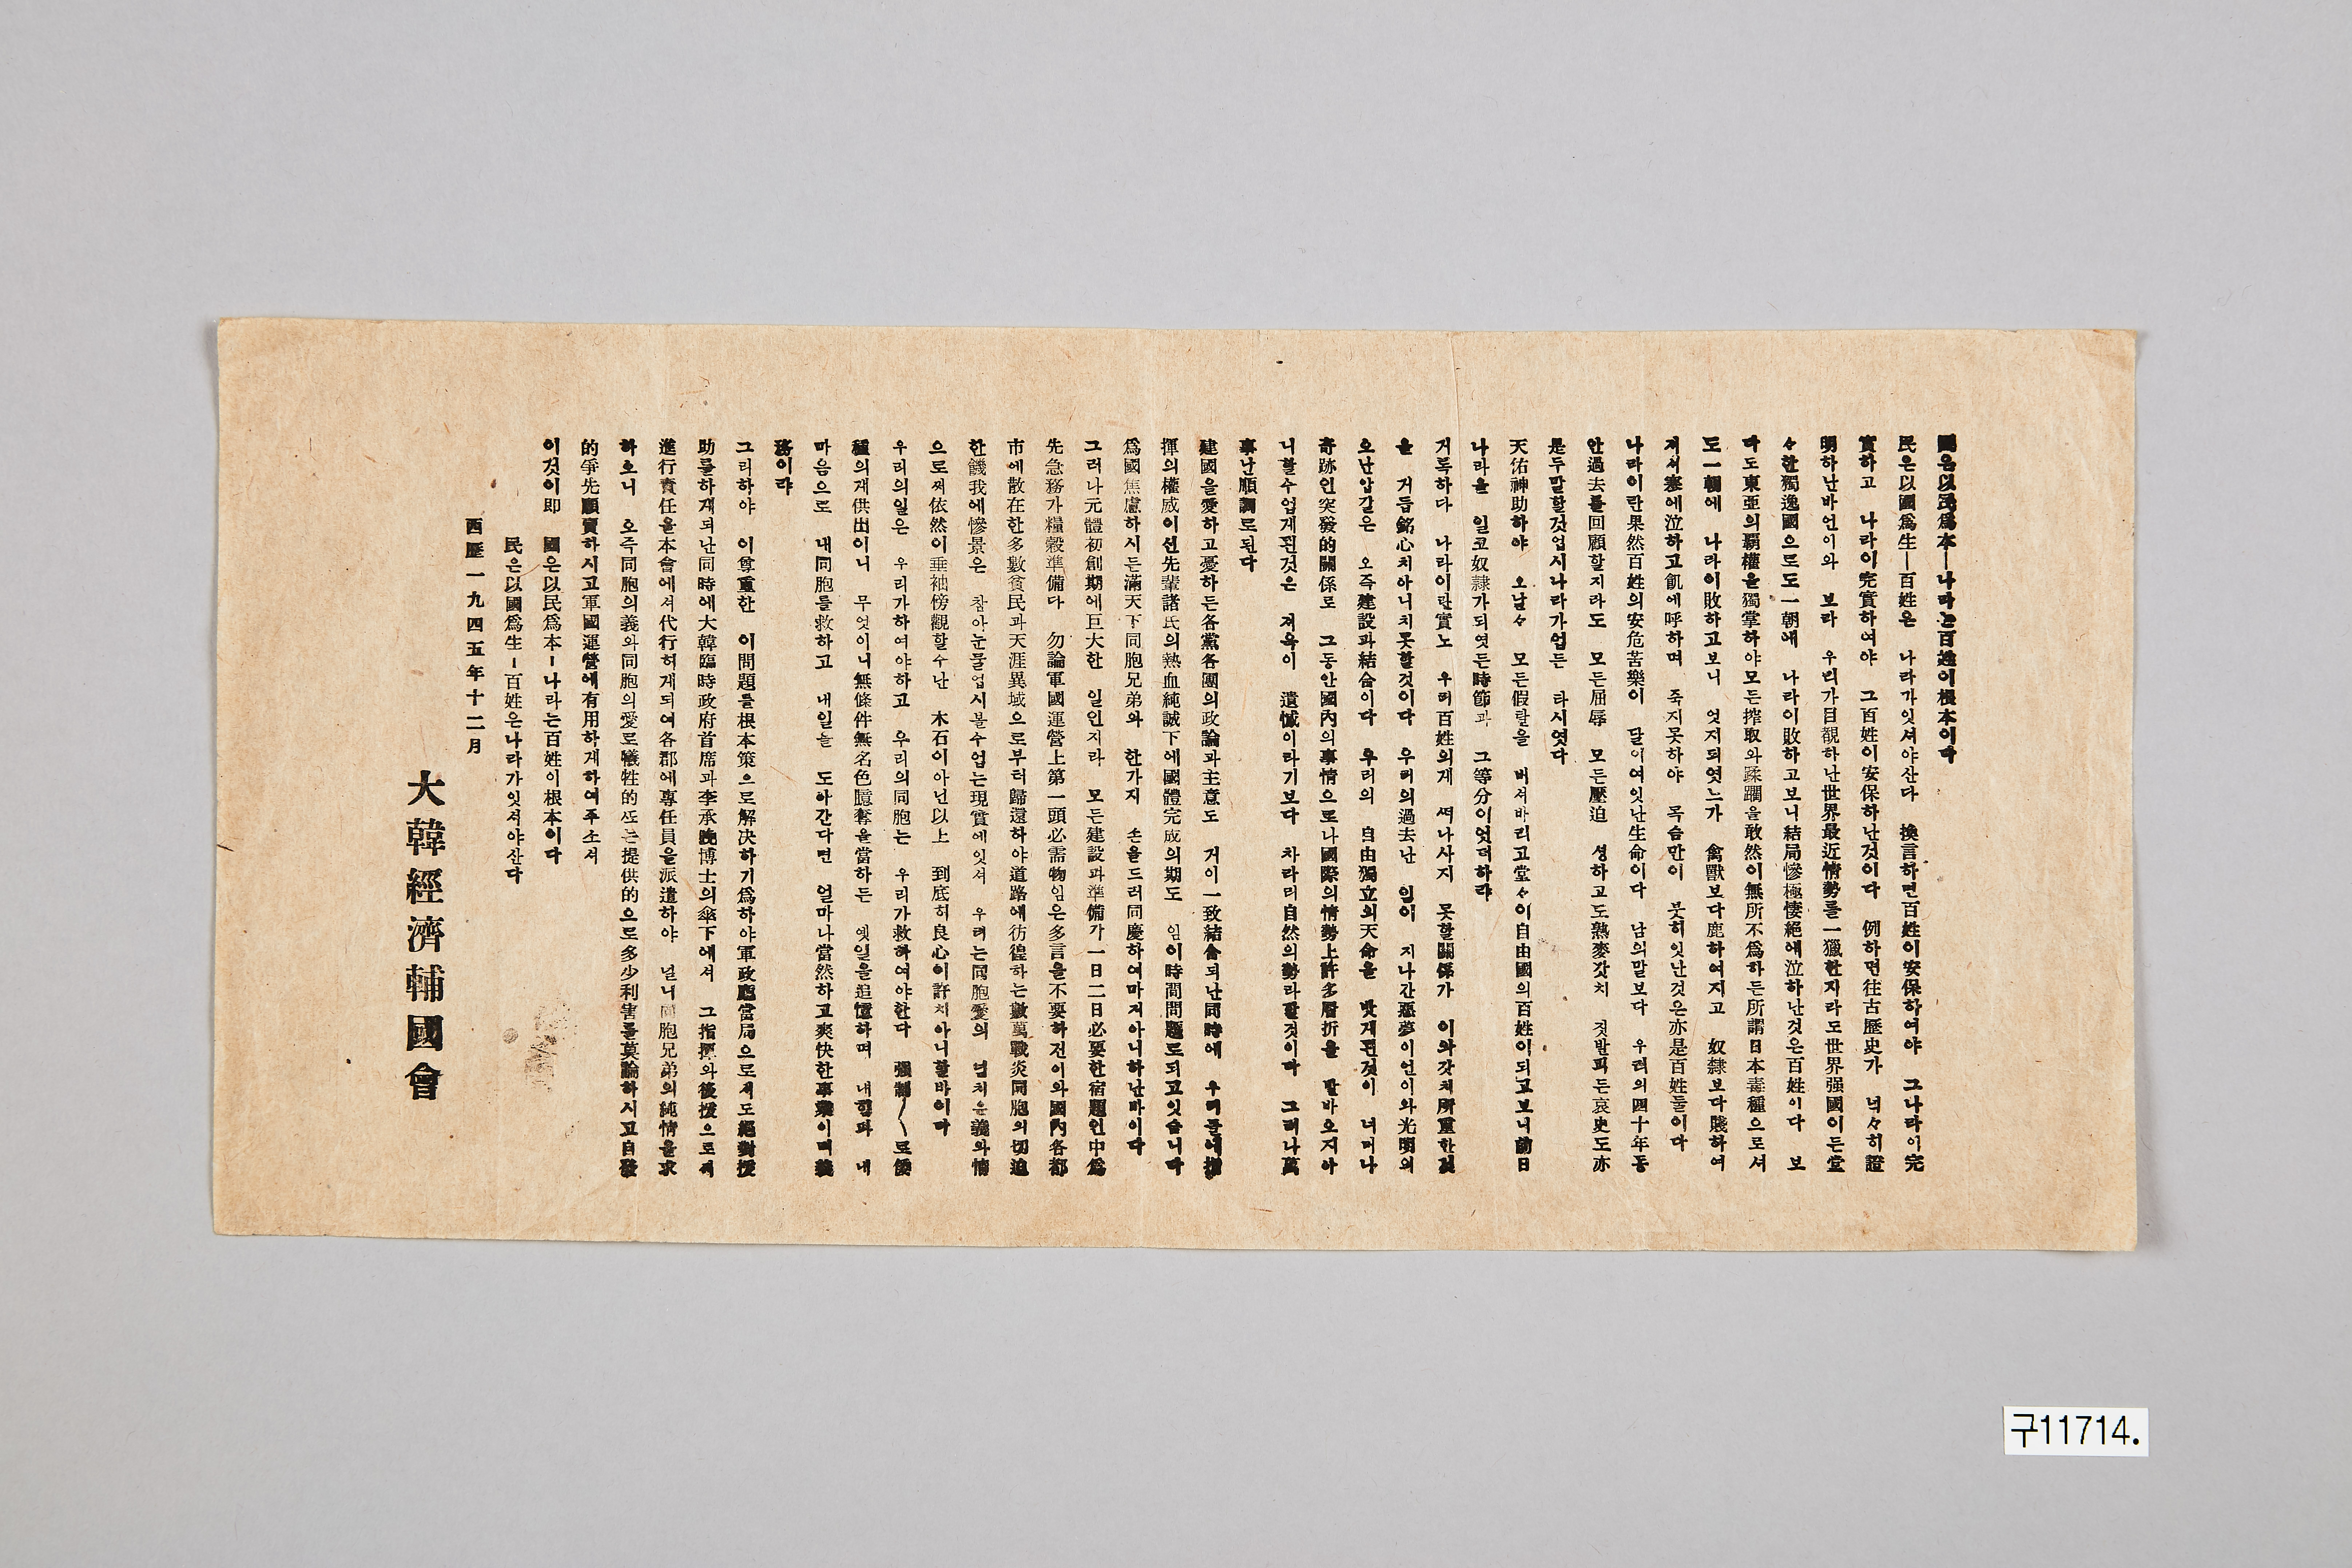 國은以民爲本—나라는百姓이根本이다
民은以國爲生—百姓은 나라가잇셔야산다 換言하면百姓이安保하여야 그나라이完
實하고 나라이完實하여야 그百姓이安保하난것이다 例하면往古歷史가 녁々히證
明하난바언이와 보라 우리가目覩하난世界最近情勢를一獵한지라도世界强國이든堂
々한獨逸國으로도一朝에 나라이敗하고보니結局慘極悽絕에泣하난것은百姓이다 보
라도東亞의覇權을獨掌하야모든搾取와蹂躙을敢然이無所不爲하든所謂日本毒種으로셔
도一朝에 나라이敗하고보니 엇지되엿느가 禽獸보다鹿하여지고 奴隸보다賤하여
져셔寒에泣하고飢에呼하며 죽지못하야 목숨만이 붓허잇난것은亦是百姓들이다
나라이란果然百姓의安危苦樂이 달이여잇난生命이다 남의말보다 우리의四十年동
안過去를回顧할지라도 모든屈辱 모든壓迫 셩하고도熟麥갓치 짓발피든哀史도亦
是두말할것업시나라가업든 타시엿다
天佑神助하야 오날々 모든假랄을 버셔바리고堂々이自由國의百姓이되고보니前日
나라을 일코奴隸가되엿든時節과 그等分이엇더하랴
거록하다 나라이란實노 우리百姓의게 쪄나사지 못할關係가 이와갓치所重한것
을 거듭銘心치아니치못할것이다 우리의過去난 임이 지나간惡夢이언이와光明의
오난압길은 오즉建設과結合이다 우리의 自由獨立의天命을 밧게된것이 너머나
奇跡인突發的關係로 그동안國內의事情으로나國際의情勢上許多層折을 발바오지아
니할수업게된것은 져욱이 遺憾이라기보다 차라리自然의勢라할것이다 그러나萬
事난順調로된다
建國을愛하고憂하든各黨各團의政論과主意도 거이一致結合되난同時에 우리들에指
揮의權威이신先輩諸氏의熱血純誠下에國體完成의期도 임이時間問題로되고잇습니다
爲國焦慮하시든滿天下同胞兄弟와 한가지 손을드러同慶하여마지아니하난바이다
그러나元體初創期에巨大한 일인지라 모든建設과準備가一日二日必要한宿題인中爲
先急務가糧穀準備다 勿論軍國運營上第一頭必需物임은多言을不要하전이와國內各都
市에散在한多數貧民과天涯異域으로부터歸還하야道路에彷徨하는數萬戰炎同胞의切迫
한饑我에慘景은 참아눈물업시볼수업는現實에잇셔 우리는同胞愛의 넘치운義와情
으로쎠依然이垂袖傍觀할수난 木石이아닌以上 到底히良心이許치아니할바이다
우리의일은 우리가하여야하고 우리의同胞는 우리가救하여야한다 强制〳〵로倭
種의게供出이니 무엇이니無條件無名色臆奪을當하든 옛일을追憶하며 내힘과 내
마음으로 내同胞를救하고 내일을 도아간다면 얼마나當然하고爽快한事業이며義
務이랴
그리하야 이尊重한 이問題를根本策으로解決하기爲하야軍政廳當局으로셔도絕對援
助를하게되난同時에大韓臨時政府首席과李承晩博士의傘下에셔 그指揮와後援으로셔
進行責任을本會에셔代行허게되여各郡에專任員을派遣하야 널니同胞兄弟의純情을求
하오니 오즉同胞의義와同胞의愛로犧牲的또는提供的으로多少利害를莫論하시고自發
的爭先願賣하시고軍國運營에有用하게하여주소셔
이것이即 國은以民爲本—나라는百姓이根本이다
民은以國爲生—百姓은나라가잇셔야산다
西歷一九四五年十二月
大韓經濟輔國會
구11714.